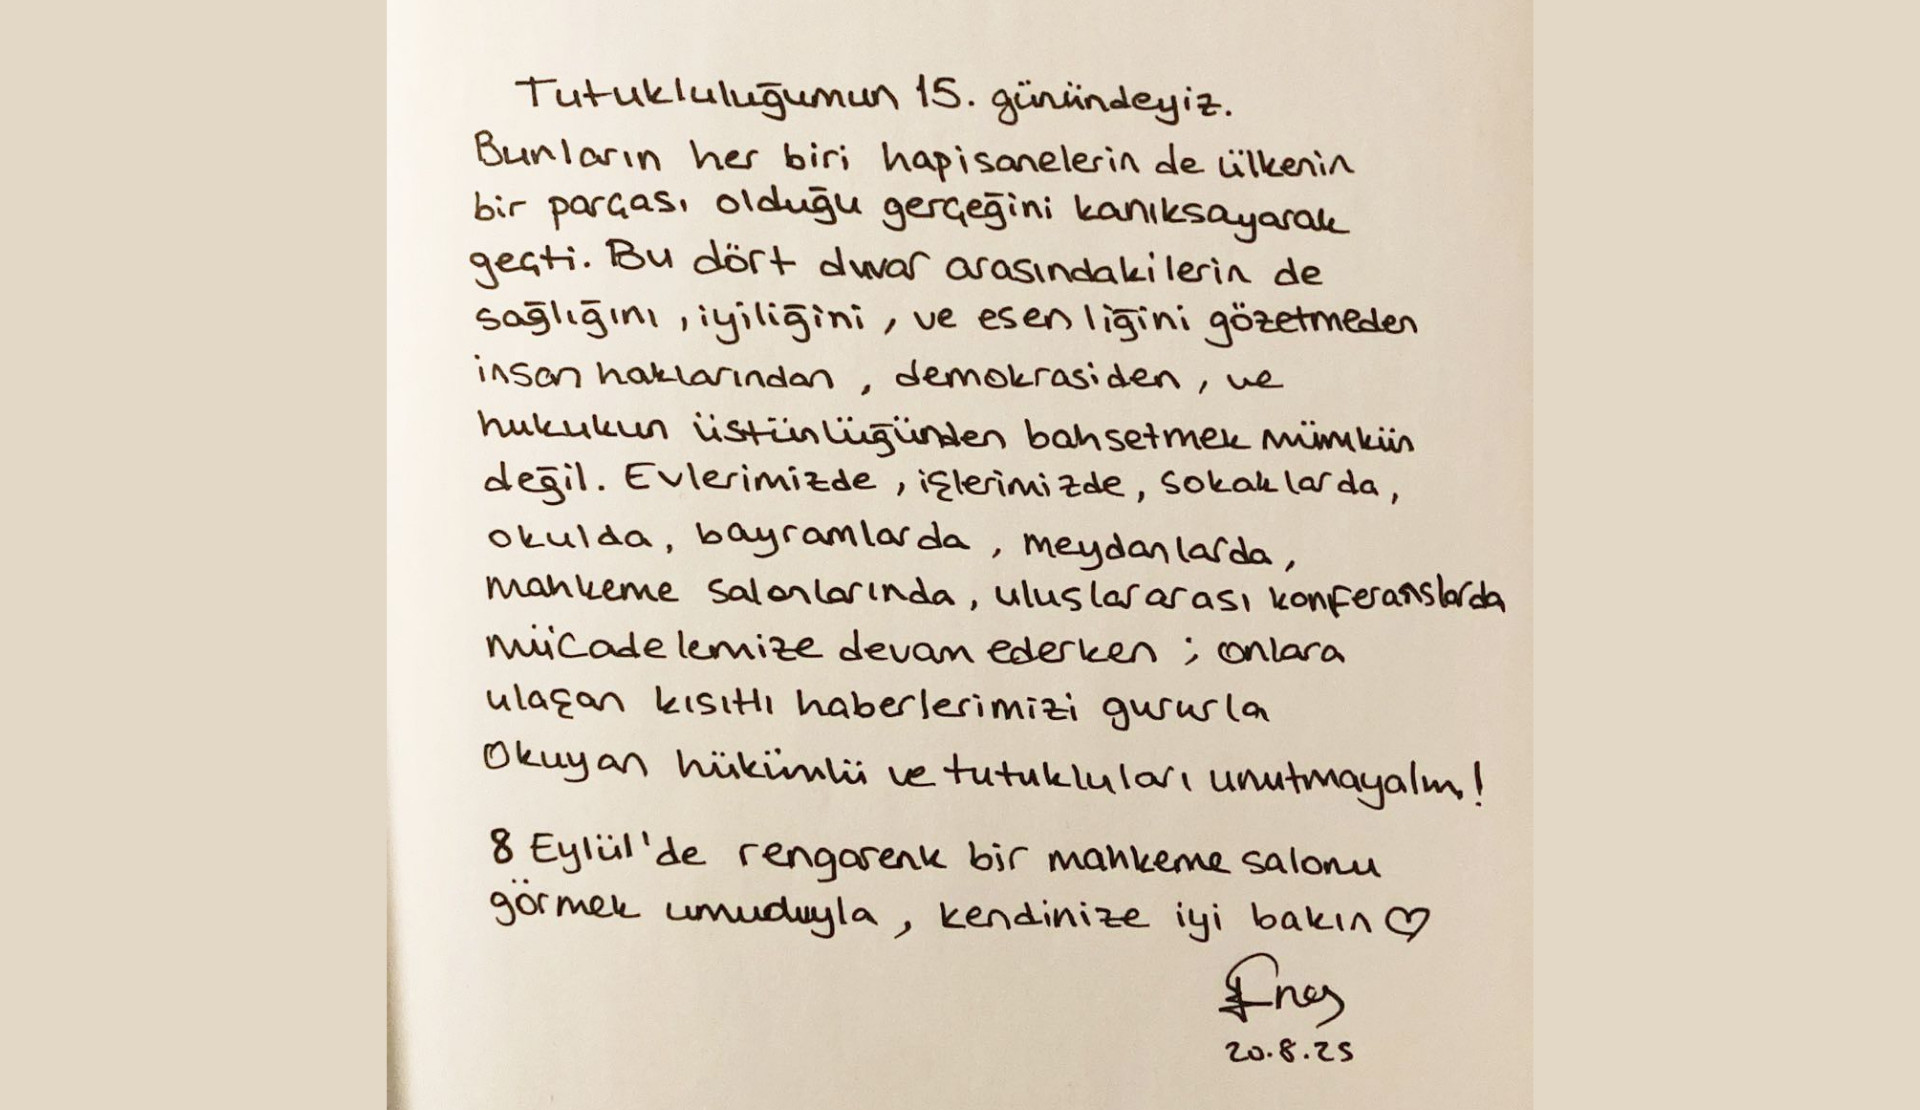 Tutukluluğumun 15. günündeyiz.
Bunların her biri hapisanelerin de ülkenin
bir parçası olduğu gerçeğini kanıksayarak
geçti. Bu dört duvar arasındakilerin de
sağlığını, iyiliğini, ve esenliğini gözetmeden
insan haklarından, demokrasiden, ve
hukukun üstünlüğünden bahsetmek mümkün
değil. Evlerimizde, işlerimizde, sokaklarda,
okulda, bayramlarda, meydanlarda,
mahkeme salonlarında, uluslararası konferanslarda
mücadelemize devam ederken; onlara
ulaşan kısıtlı haberlerimizi gururla
okuyan hükümlü ve tutukluları unutmayalım!
8 Eylül'de rengarenk bir mahkeme salonu
görmek umuduyla, kendinize iyi bakın ♡
Enes
20.8.25